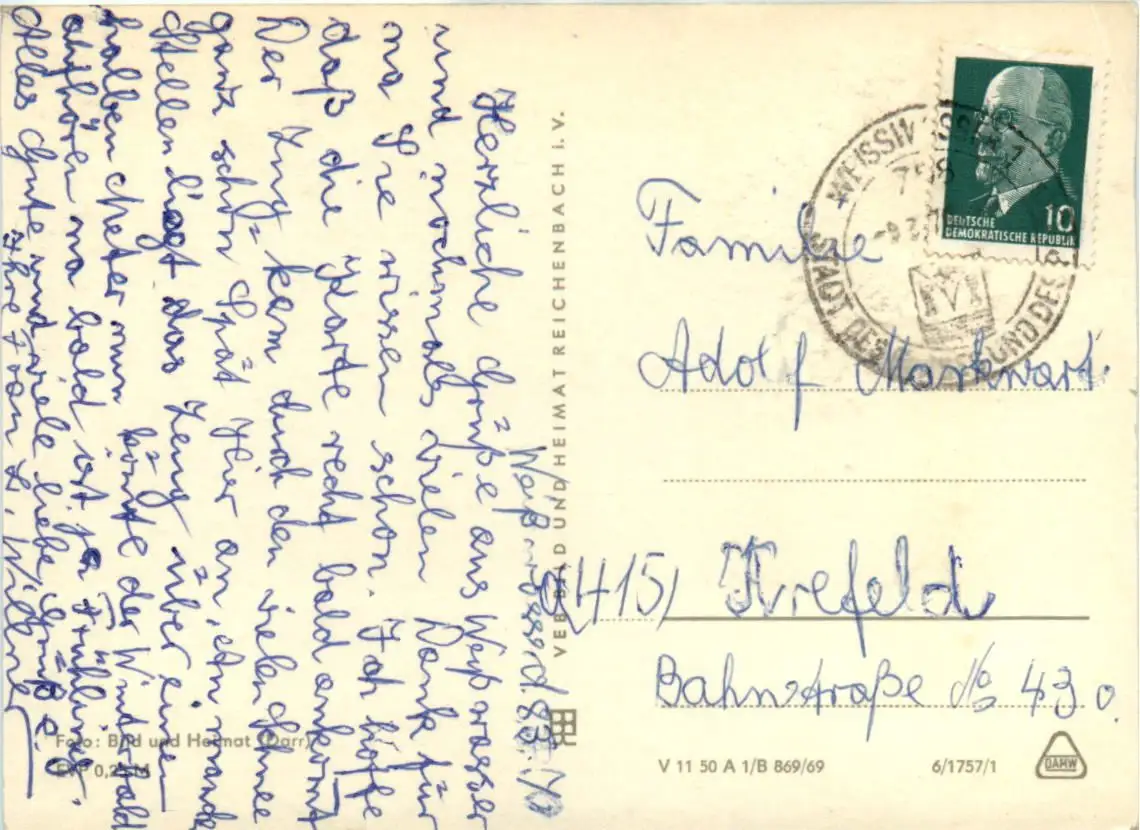 Weißwasser, d. 8.3.70
Herzliche Grüße aus Weißwasser
und nochmals vielen Dank für
na Sie wissen schon. Ich hoffe
daß die Karte recht bald ankomt
Der Zug kam durch den vielen Schnee
ganz schön Spät hier an, an manchen
Stellen liegt das Zeug über einen
halben meter nun könnte der Winter bald
aufhören na bald ist ja Frühling.
Alles Gute und viele liebe Grüße.
Ihre Frau L.
Foto: Bild und Heimat (Darr)
EVP 0,25 M
VEB BILD UND HEIMAT REICHENBACH i. V.
WEISSWASSER
STADT DES UND DES
DEUTSCHE
DEMOKRATISCHE REPUBLIK
10
Familie
Adolf Markwart
(415) Krefeld
Bahnstraße No 43.
V 11 50 A 1/B 869/69 6/1757/1
DAMW